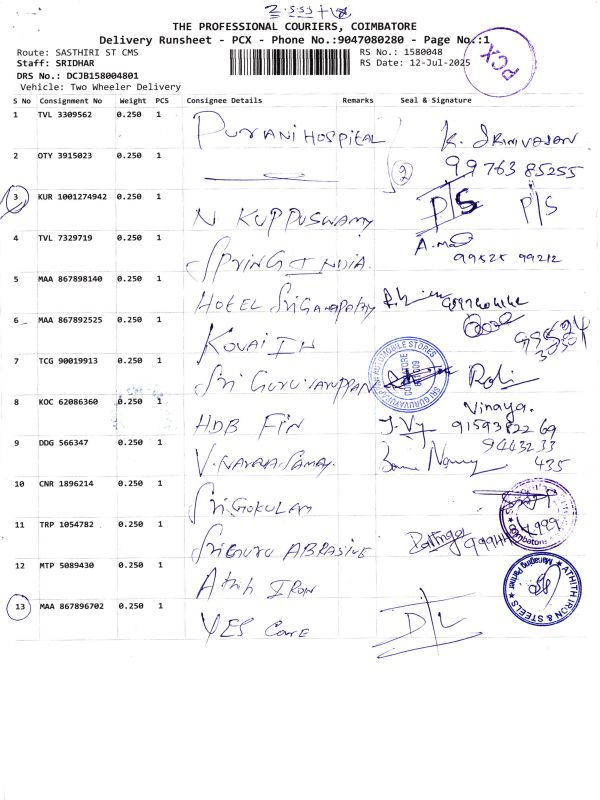 THE PROFESSIONAL COURIERS, COIMBATORE
Delivery Runsheet - PCX - Phone No.:9047080280 - Page No.:1
Route: SASTHIRI ST CMS RS No.: 1580048
Staff: SRIDHAR RS Date: 12-Jul-2025
PCX
DRS No.: DCJB158004801
Vehicle: Two Wheeler Delivery
S No Consignment No Weight PCS Consignee Details Remarks Seal & Signature
1 TVL 3309562 0.250 1 PURANI HOSPITAL K. SRINIVASAN
2 OTY 3915023 0.250 1 2 99763 85255
3 KUR 1001274942 0.250 1 N KUPPUSWAMY P/S P/S
4 TVL 7329719 0.250 1 SPRING INDIA 99525 99212
5 MAA 867898140 0.250 1 HOTEL Sri Ganapathy
6 MAA 867892525 0.250 1 KOVAI IN
7 TCG 90019913 0.250 1 Sri Guruvayurappan
AUTOMOBILE STORES
8 KOC 62086360 0.250 1 HDB FIN Vinaya.
9159382269
9 DDG 566347 0.250 1 V. Narayanasamy 9443233
435
10 CNR 1896214 0.250 1 Sri GOKULAM
11 TRP 1054782 0.250 1 Sri GURU ABRASIVE
Coimbatore
12 MTP 5089430 0.250 1 Athith IRON
ATHITH IRON & STEELS
Managing Partner
13 MAA 867896702 0.250 1 YES Care D/L